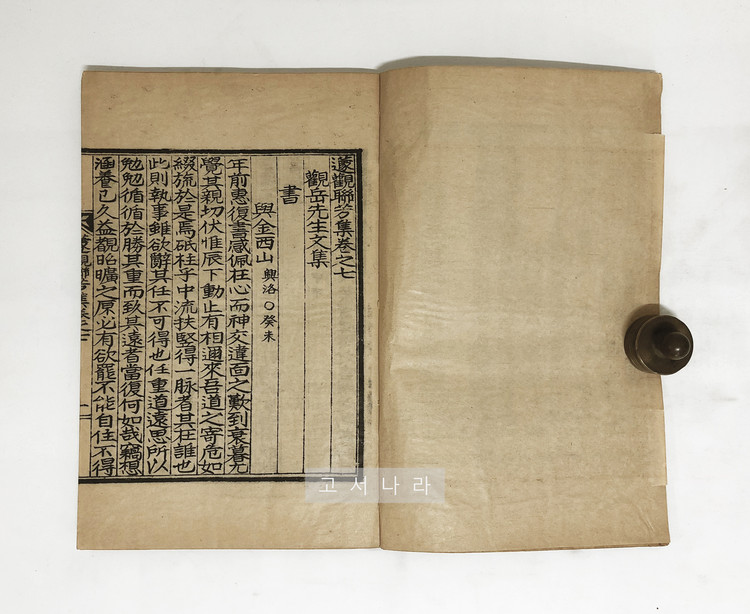 蘧觀聯芳集卷之七
觀岳先生文集
書
與金西山 興洛○癸未
年前惠復書感佩在心而神交違面之歎到衰暮尤
覺其親切伏惟辰下動止有相邇來吾道之寄危如
綴旒於是焉砥柱乎中流扶竪得一脉者其在誰也
此則執事雖欲辭其任不可得也任重道遠思所以
勉勉循循於勝其重而致其遠者當復何如哉竊想
涵養已久益覩昭曠之原必有欲罷不能自住不得
고서나라